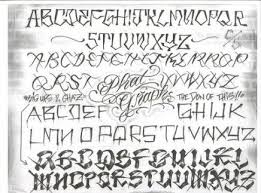 ABCDEFGHIJKLMNOPQR
STUVWXYZ
ABCDEFGHIJKLMNOP
QRST Phat UVWXYZ
Graphx THE DON OF THIS!!
ABCDEF GHIJK
LMNOPQRSTUVWXYZ
ABCDEFGHIJKL
MNOPQRSTUVWXYZ